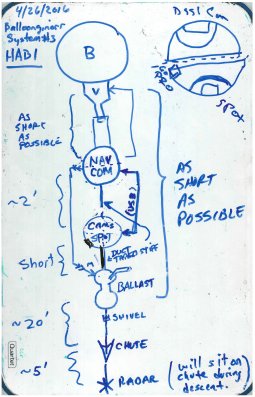 4/26/2016
Balloonengineer
System #3
HAB1
B
V
AS
SHORT
AS
POSSIBLE
NAV
COM
~2'
(USB)
CAMS
SPOT
Short
DUCT
TAPED STIFF
BALLAST
~20'
SWIVEL
CHUTE
~5'
RADAR
(will sit on
chute during
descent.)
AS
SHORT
AS
POSSIBLE
DSSI Com
SPOT
Quartet